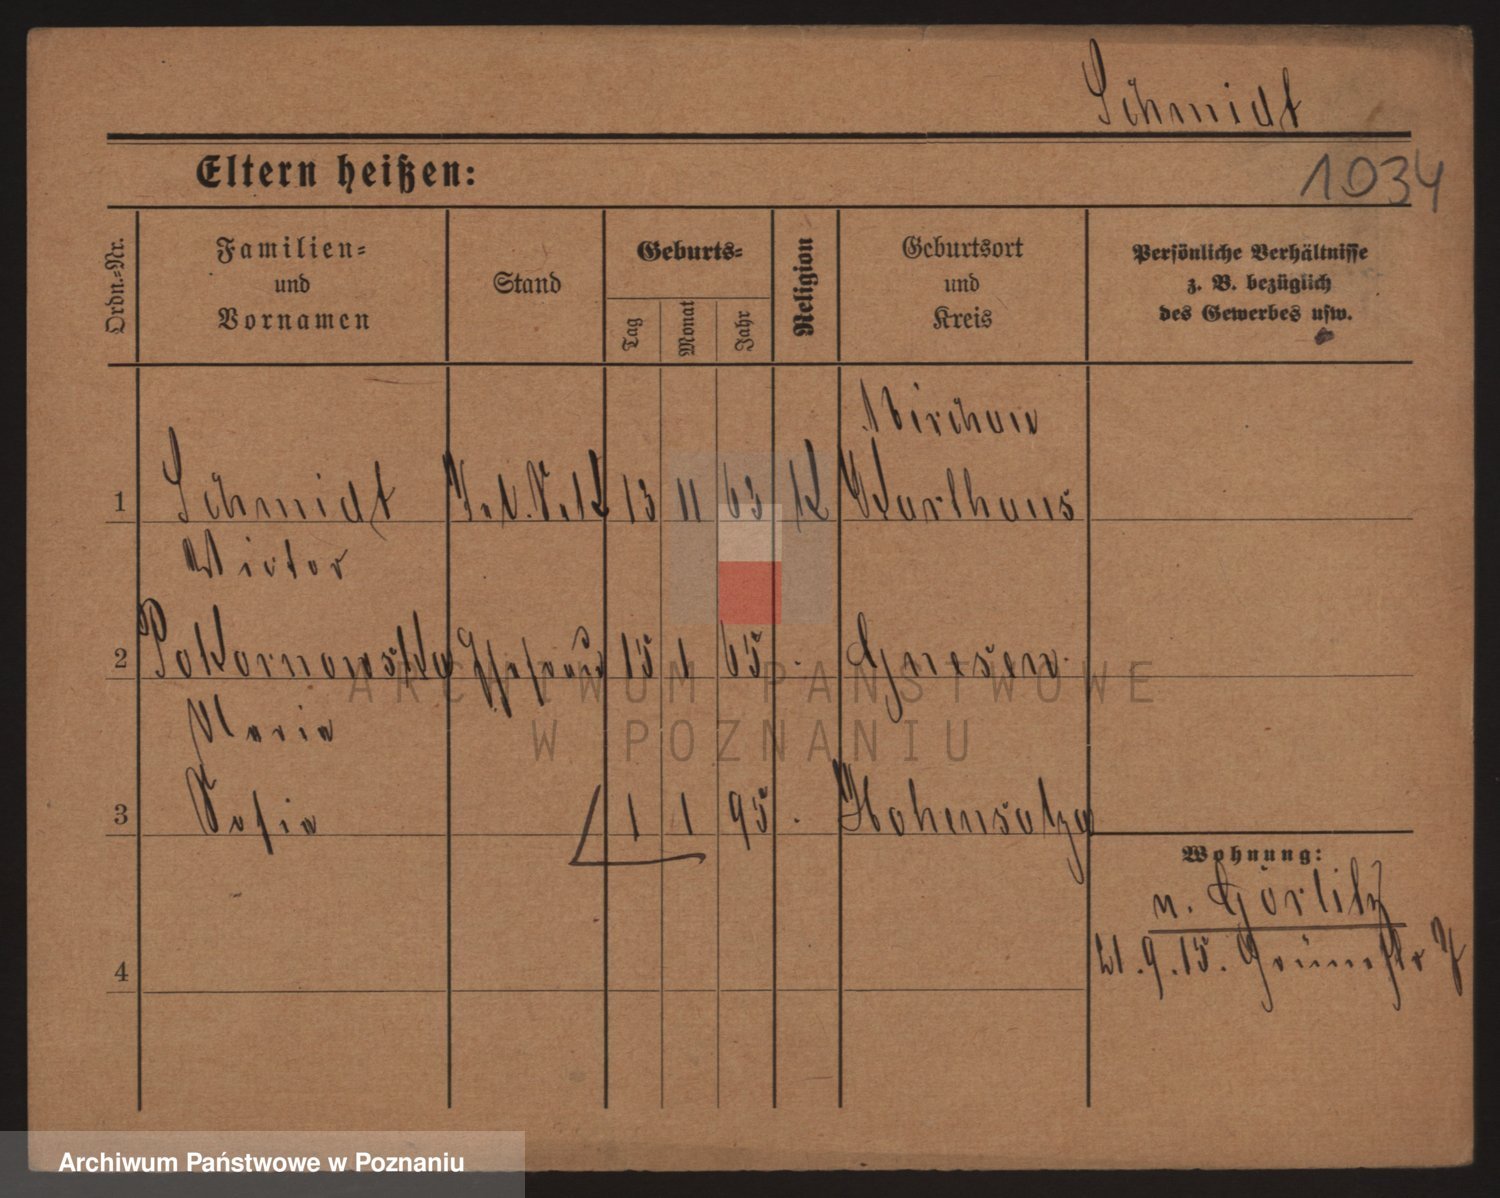 Schmidt
Eltern heißen:
1034
Ordn.-Nr.
Familien-
und
Vornamen
Stand
Geburts-
Tag
Monat
Jahr
Religion
Geburtsort
und
Kreis
Persönliche Verhältnisse
z. B. bezüglich
des Gewerbes usw.
Mirchau
1 Schmidt 13 11 63 K Karthaus
Victor
2 Pokornowska Ehefrau 15 1 65 Gnesen
Maria
3 Sofia 1 1 95 Hohensalza
Wohnung:
n. Görlitz
21.9.15. Grünestr
4
ARCHIWUM PAŃSTWOWE
W POZNANIU
Archiwum Państwowe w Poznaniu